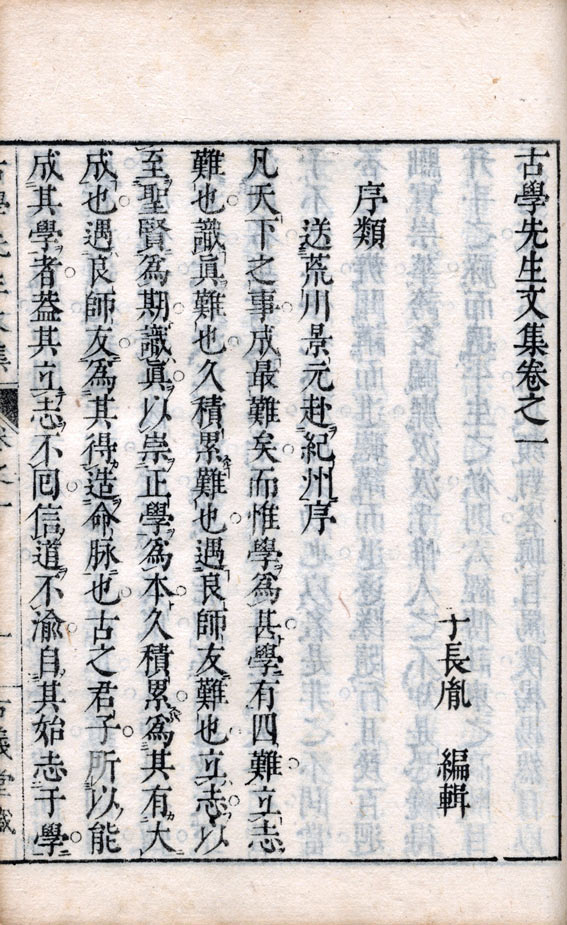 古學先生文集卷之一
子長胤　編輯
序類
送荒川景元赴紀州序
凡天下之事成最難矣而惟學爲甚學有四難立志
難也識眞難也久積累難也遇良師友難也立志以
至聖賢爲期識眞以崇正學爲本久積累爲其有大
成也遇良師友爲其得造命脉也古之君子所以能
成其學者葢其立志不回信道不渝自其始志于學
古學先生文集
卷之一
一
古義堂藏